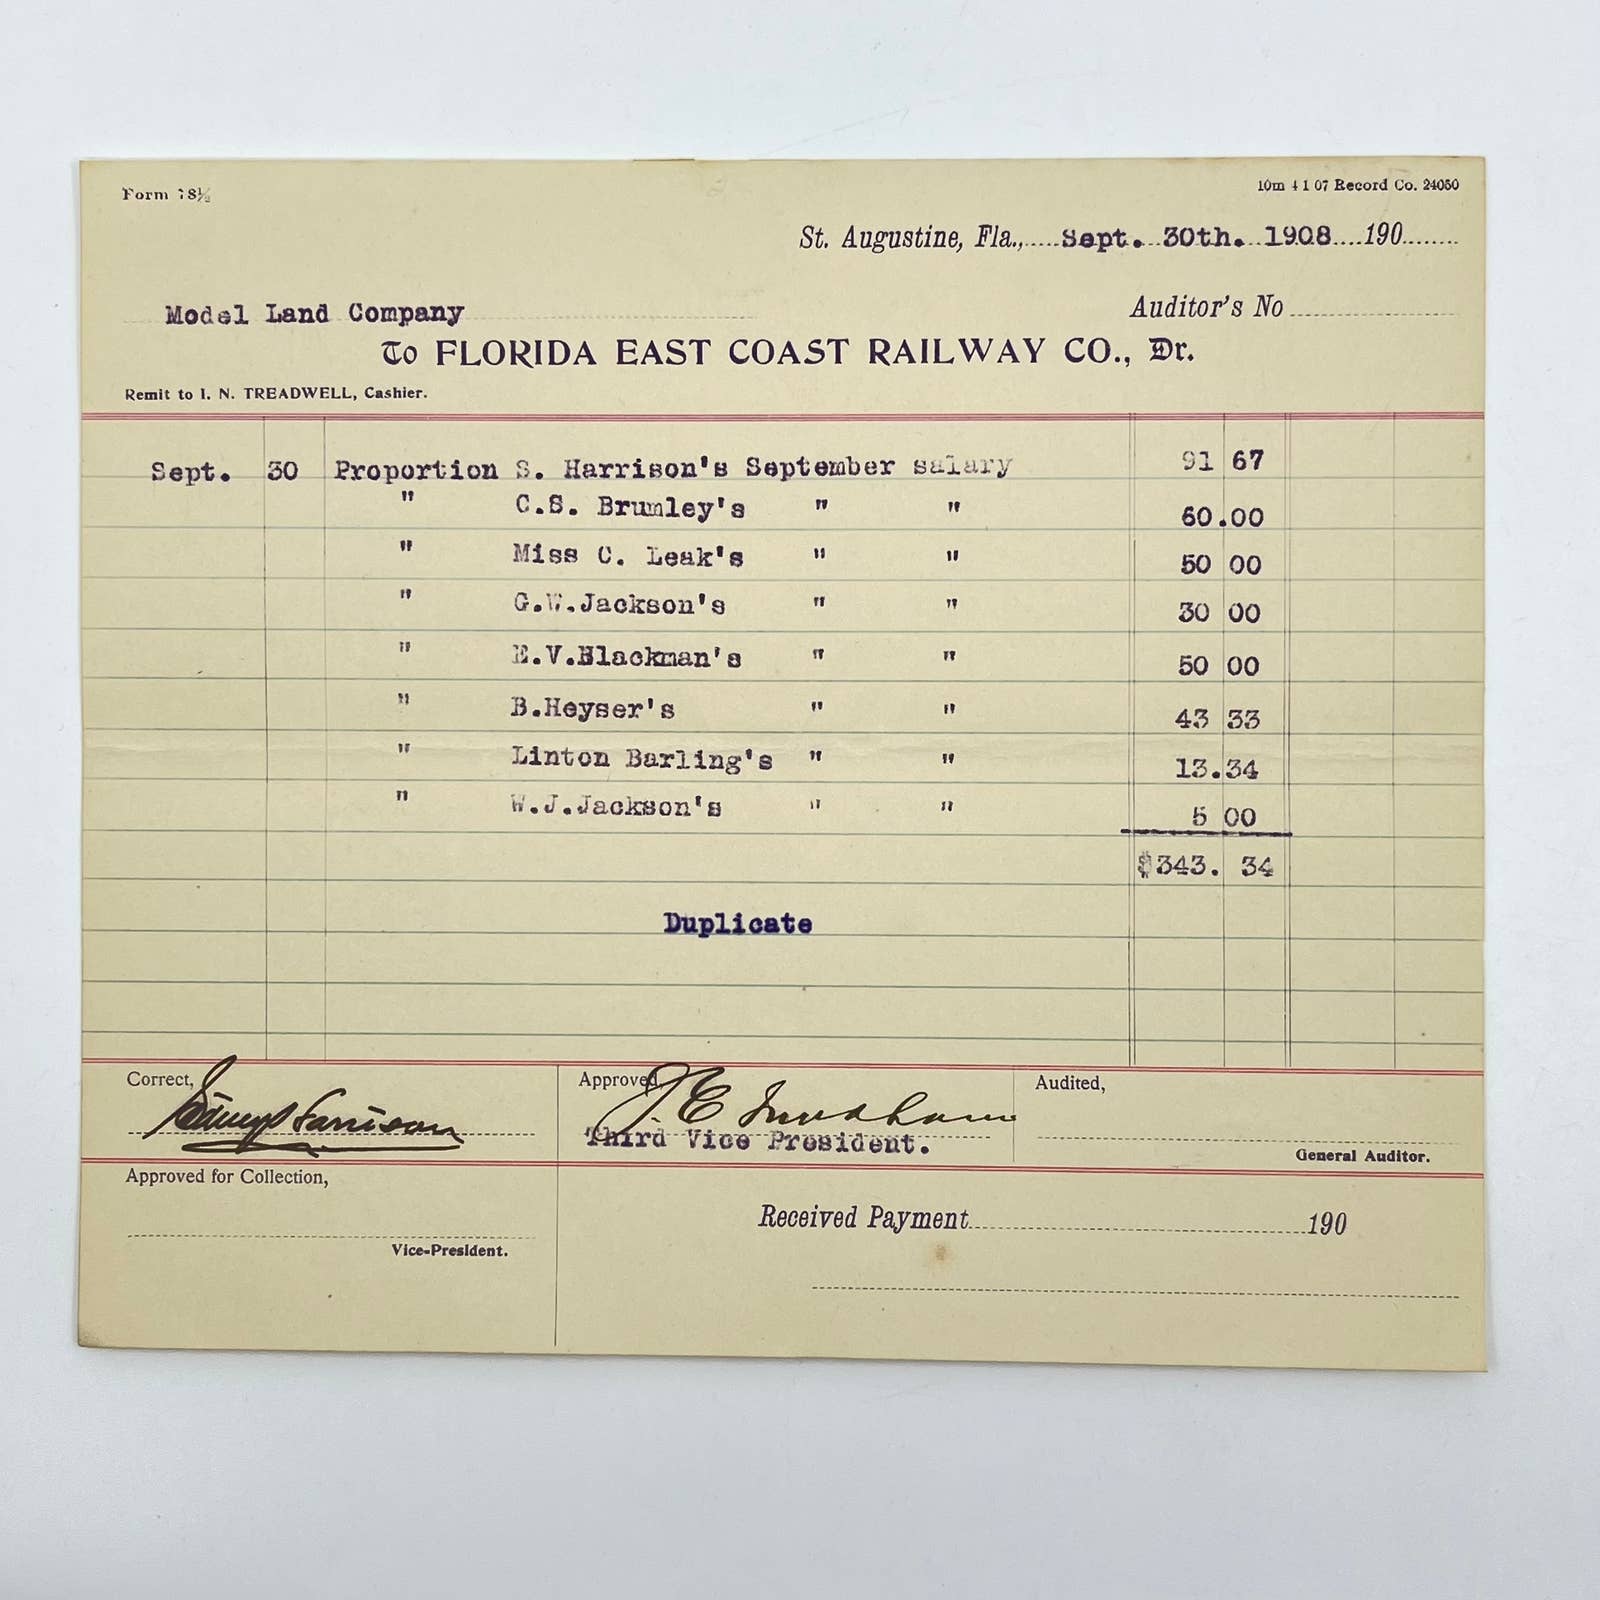 Form 78½
10m 4 1 07 Record Co. 24050
St. Augustine, Fla., Sept. 30th. 1908 190
Model Land Company
Auditor's No
To FLORIDA EAST COAST RAILWAY CO., Dr.
Remit to I. N. TREADWELL, Cashier.
Sept. 30 Proportion S. Harrison's September salary 91 67
" C.S. Brumley's " " 60.00
" Miss C. Leak's " " 50 00
" G.W.Jackson's " " 30 00
" E.V.Blackman's " " 50 00
" B.Heyser's " " 43 33
" Linton Barling's " " 13.34
" W.J.Jackson's " " 5 00
$343. 34
Duplicate
Correct,
Approved,
Audited,
J. E. Ingraham
Third Vice President.
General Auditor.
Approved for Collection,
Received Payment 190
Vice-President.